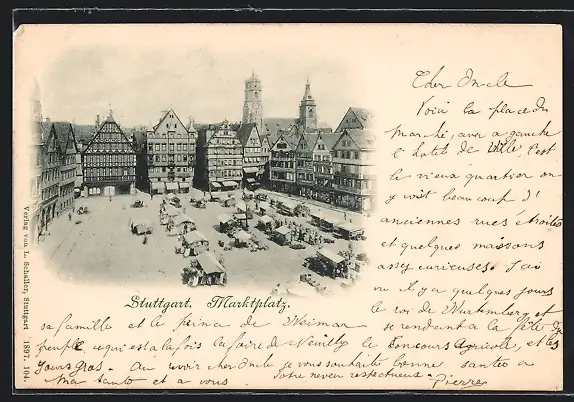 Cher Oncle
Voici la place du
Marché, avec a gauche
l'hotel de Ville, c'est
le vieux quartier on
y voit beaucoup d'
anciennes rues étroites
et quelques maisons
assez curieuses. J'ai
vu il y a quelques jours
le roi de Wurtemberg et
sa famille et le prince de Weimar se rendant a la fête du
peuple, ce qui est a la fois la foire de Neuilly le Concours Agricole, et les
jours gras. Au revoir cher Oncle je vous souhaite bonne santée a
Ma tante et a vous Votre neveu respectueux Pierre
Stuttgart. Marktplatz.
Verlag von L. Schaller, Stuttgart 1897. 104.